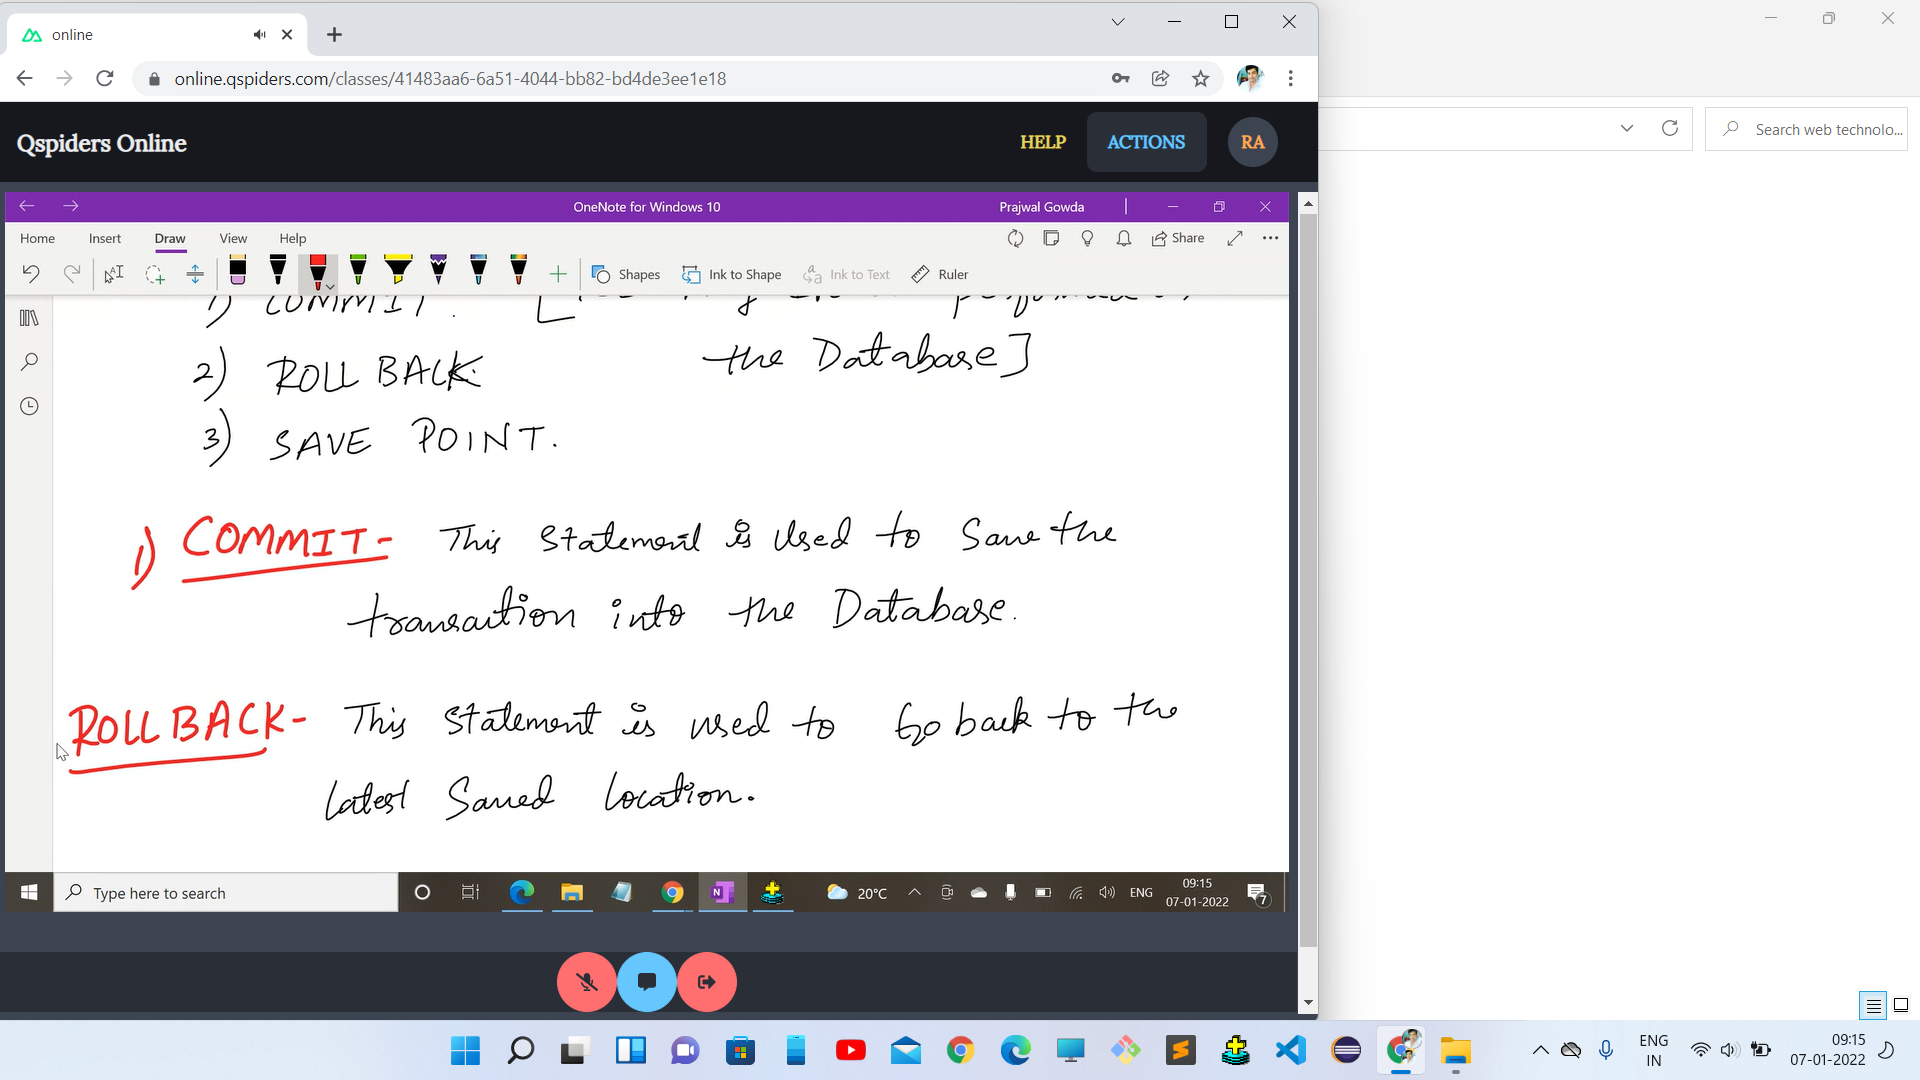 online
online.qspiders.com/classes/41483aa6-6a51-4044-bb82-bd4de3ee1e18
Search web technolo...
Qspiders Online
HELP
ACTIONS
RA
OneNote for Windows 10
Prajwal Gowda
Home Insert Draw View Help
Share
Shapes
Ink to Shape
Ink to Text
Ruler
1) COMMIT.
2) ROLL BACK
the Database]
3) SAVE POINT.
1) COMMIT- This Statement is Used to Save the
transaction into the Database.
ROLL BACK- This Statement is used to Go back to the
latest Saved location.
Type here to search
20°C
ENG
09:15
07-01-2022
7
ENG
IN
09:15
07-01-2022